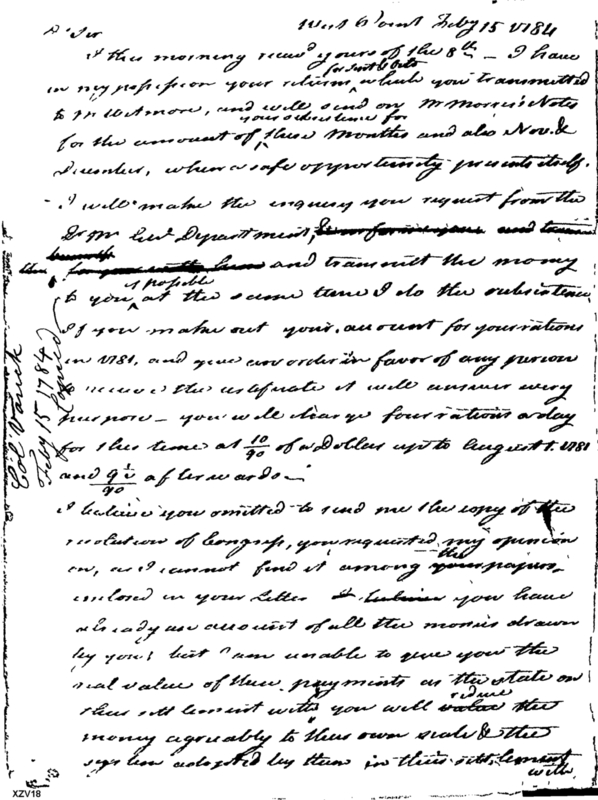 West Point Feby 15 1784
Dr Sir
I this morning recevd yours of the 8th – I have
for Sept & Octr
in my possession your returns which you transmitted
to Mr Wetmore, and will send on Mr Morris's Notes
your subsistence for
for the amount of these Months and also Nov. &
December, when a safe opportunity presents itself.
I will make the inquery you request from the
Qr Mr Genl Department, and
and transmit the money
if possible
to you at the same time I do the subsistence
If you make out your account for your rations
in 1781, and give an order in favor of any person
to receive the certificate it will answer every
purpose – you will charge four rations a day
for this time at 10/90 of a Dollar up to August 1. 1781
and 9½/90 afterwards –
I believe you omitted to send me the copy of the
resolution of Congress, you requested my opinion
the
on, as I cannot find it among your papers
inclosed in your Letter I believe you have
already an account of all the monies drawn
by you; but I am unable to give you the
real value of these payments as the state on
reduce
this settlement with you will value the
money agreeably to their own scale & the
system adopted by them in their settlement
with
Col Varick
Feby 15 1784
Copied
XZV18